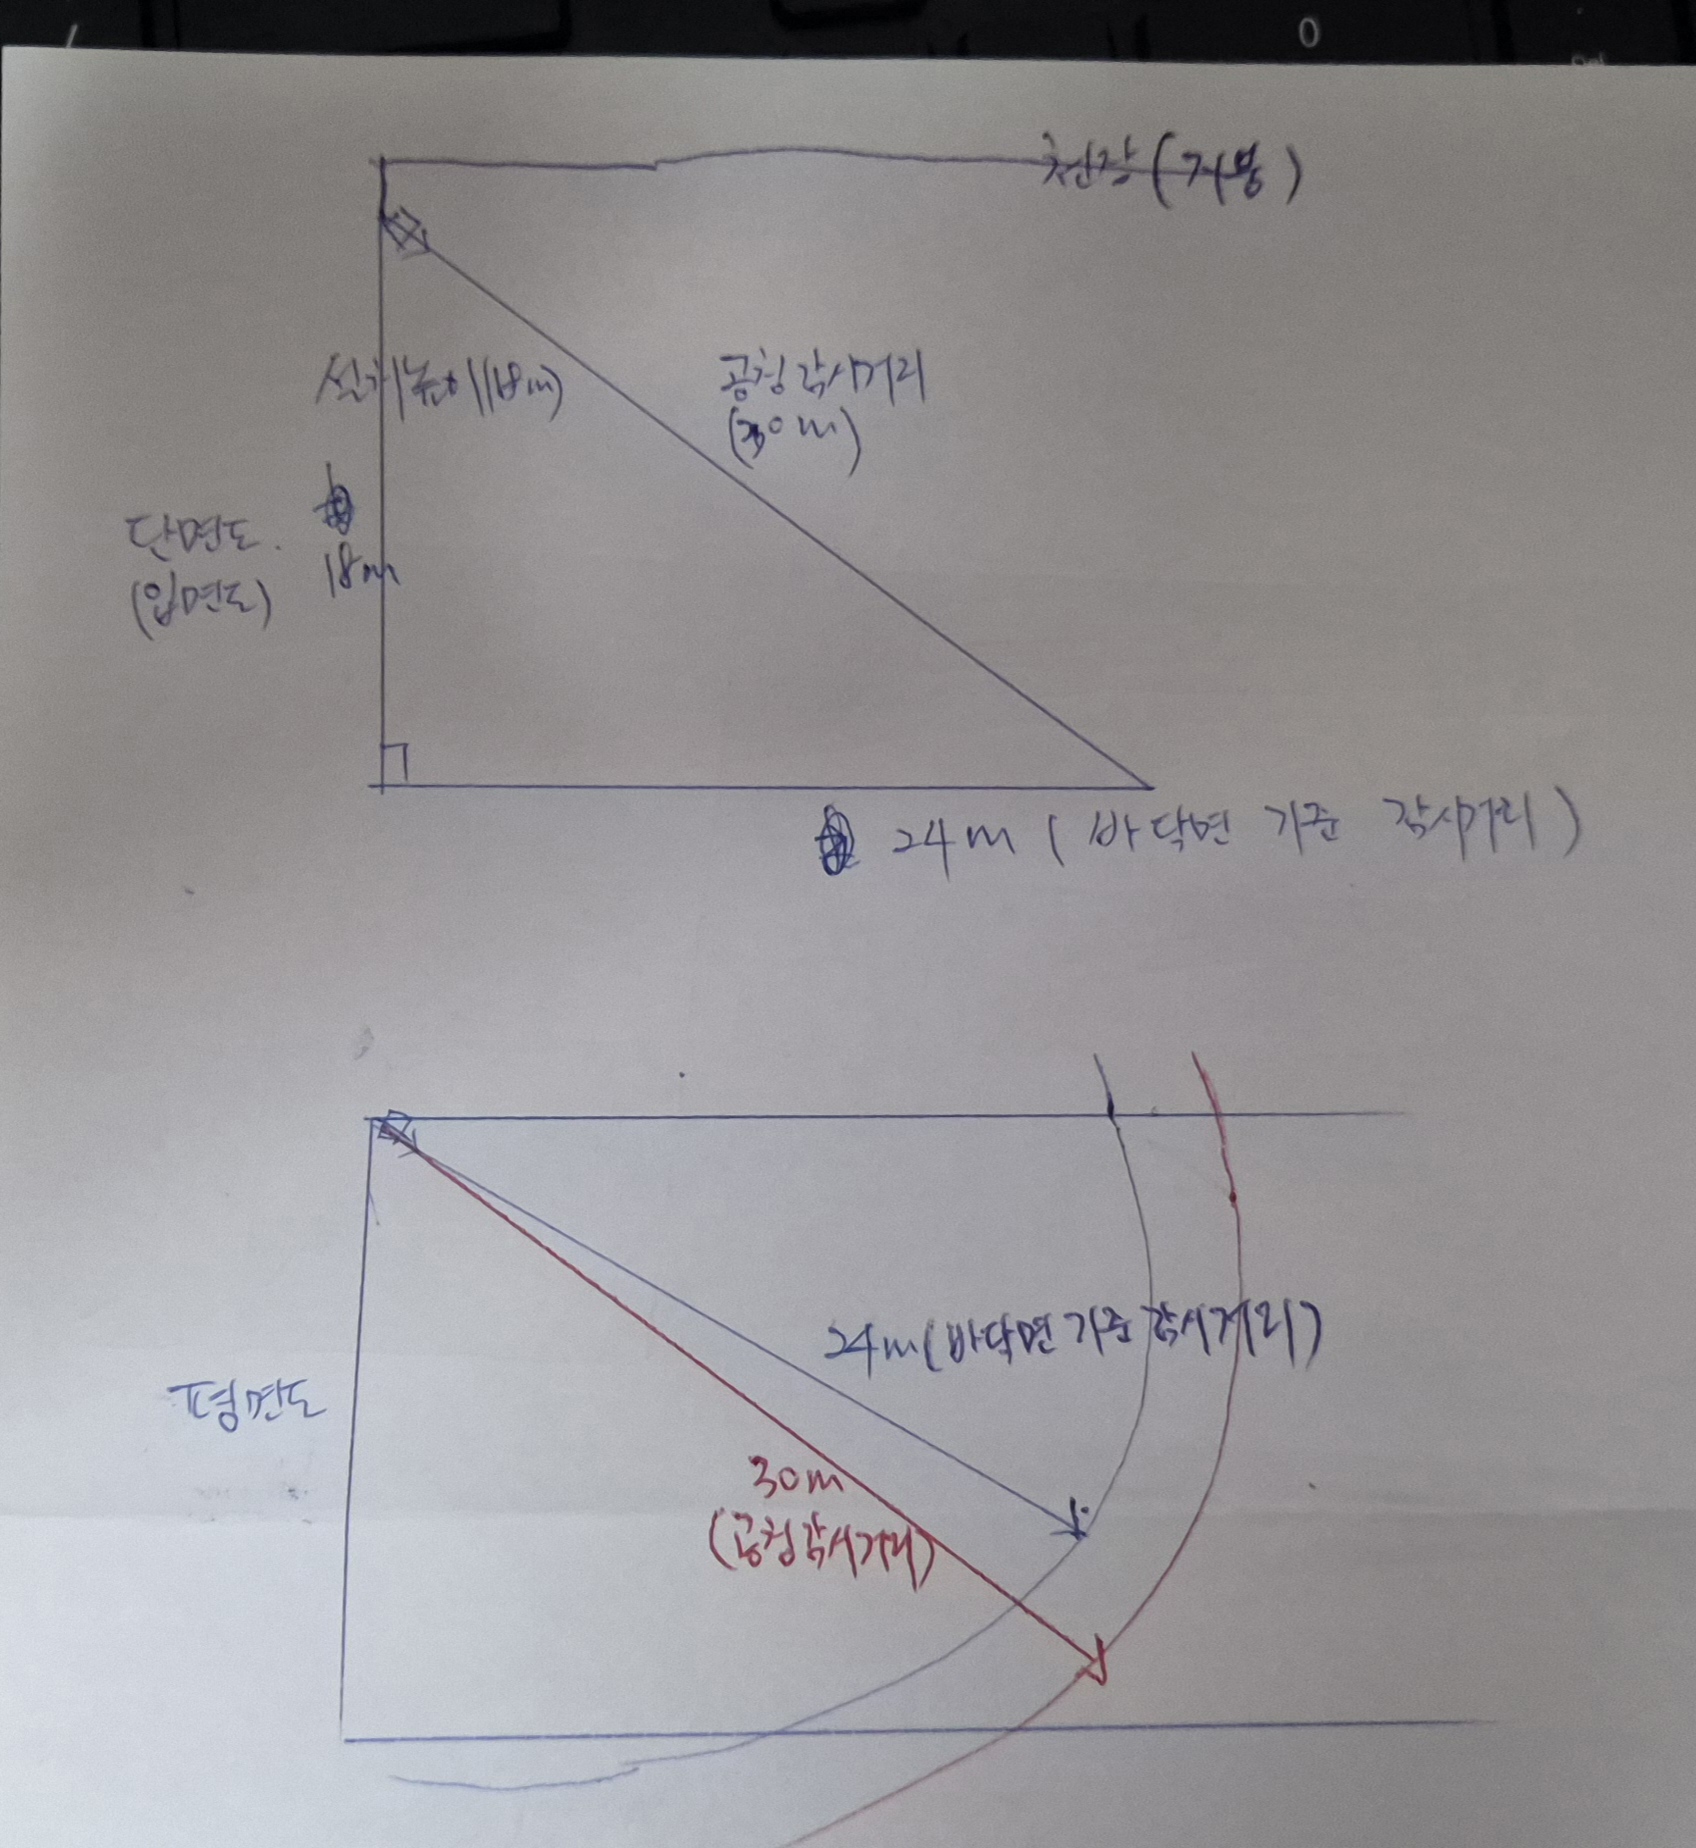 0
천장(지붕)
설치높이(18m)
공칭감시거리
(30m)
단면도.
(입면도)
18m
24m (바닥면 기준 감시거리)
24m(바닥면 기준 감시거리)
평면도
30m
(공칭감시거리)